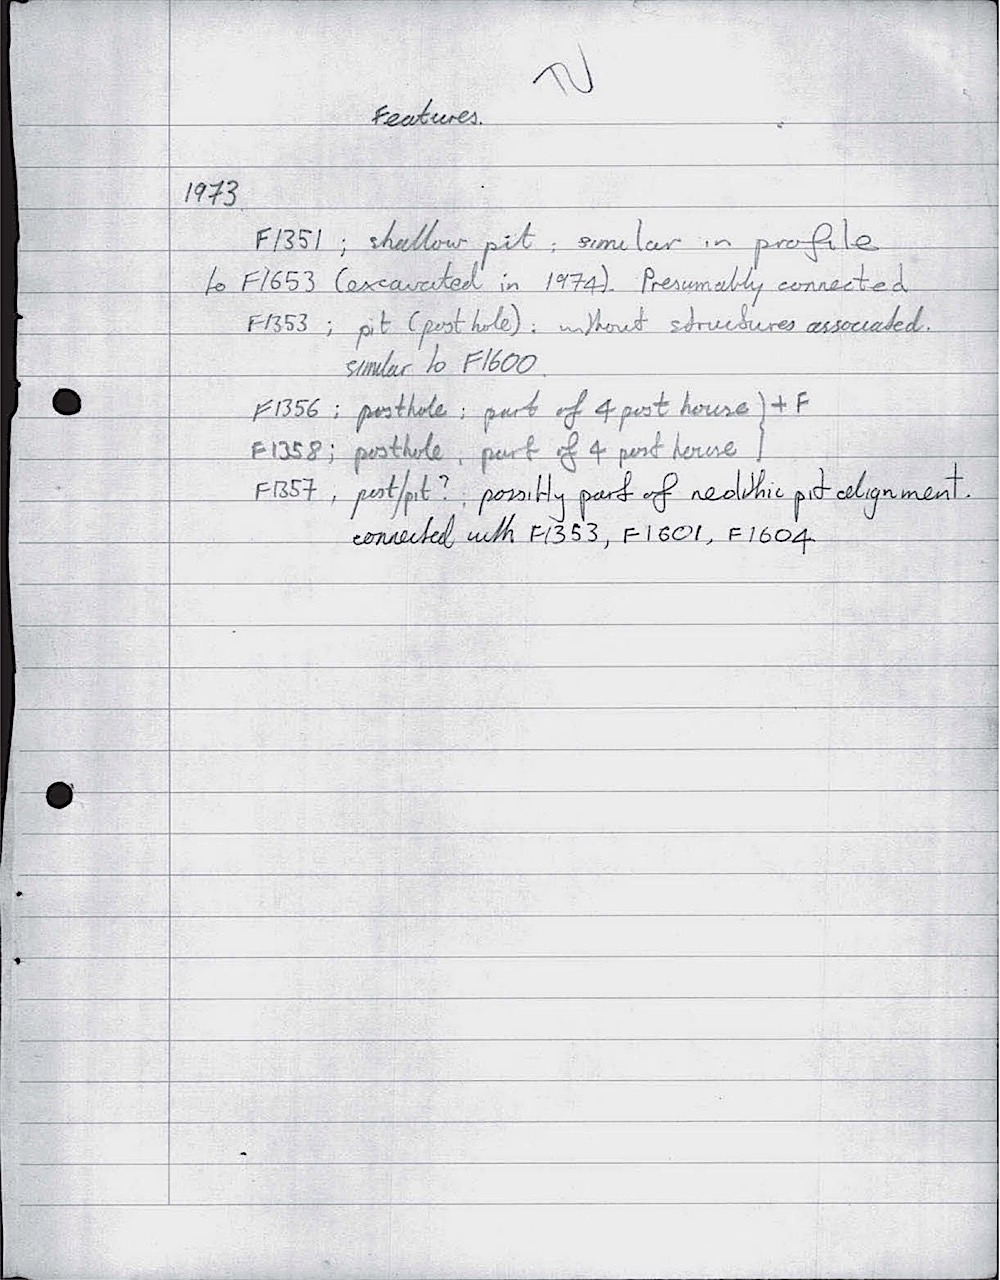 Features.
1973
F1351 ; shallow pit ; similar in profile
to F1653 (excavated in 1974). Presumably connected
F1353 ; pit (posthole) ; without structures associated.
similar to F1600.
F1356 ; posthole ; part of 4 post house } + F
F1358 ; posthole , part of 4 post house
F1357 , post/pit? ; possibly part of neolithic pit alignment.
connected with F1353, F1601, F1604